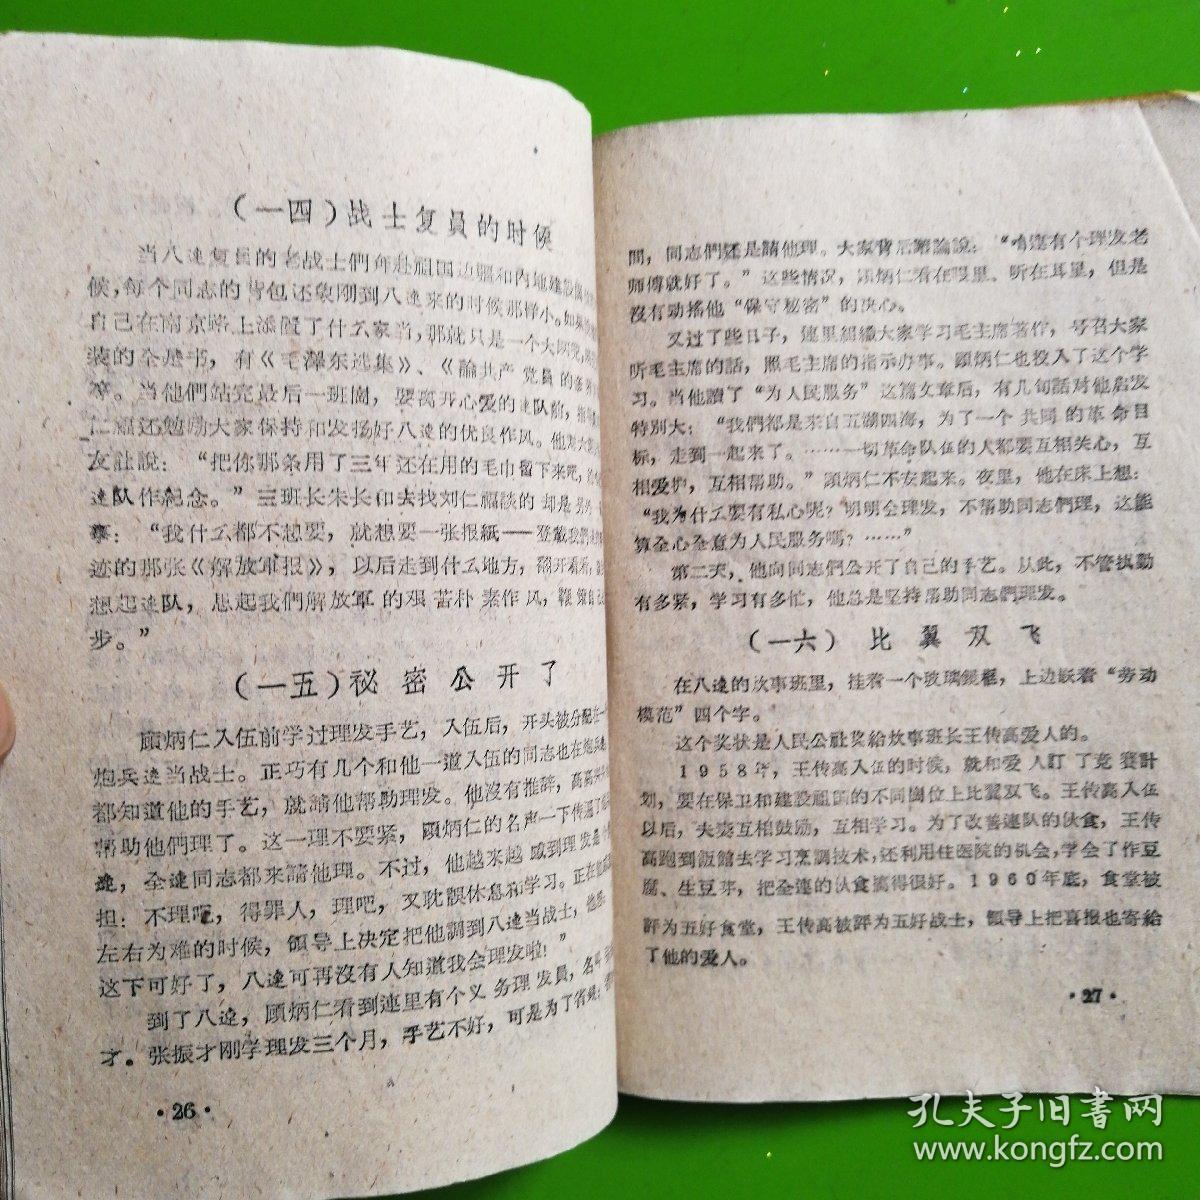 （一四）战士复員的时候
当八連复員的老战士們奔赴祖国边疆和内地建設
候，每个同志的背包还象刚到八連来的时候那样小。如果
自己在南京路上添置了什么家当，那就只是一个大
装的全是书，有《毛澤东选集》、《論共产党員的
等。当他們站完最后一班崗，要离开心爱的連队前，指
仁福还勉励大家保持和发揚好八連的优良作风。他对大
友社說：“把你那条用了三年还在用的毛巾留下来吧，
連队作紀念。”三班长朱长和去找刘仁福談的却是另外一
事：“我什么都不想要，就想要一张报紙——登載我們
迹的那张《解放军报》，以后走到什么地方，翻开看看，
想起連队，想起我們解放軍的艰苦朴素作风，鞭策自己
步。”
（一五）秘密公开了
顾炳仁入伍前学过理发手艺，入伍后，开头被分配在一
炮兵連当战士。正巧有几个和他一道入伍的同志也在炮兵連
都知道他的手艺，就請他帮助理发。他沒有推辞，高高兴兴
帮助他們理了。这一理不要紧，顾炳仁的名声一下传遍了
連，全連同志都来請他理。不过，他越来越感到理发是个
担：不理呢，得罪人，理吧，又耽誤休息和学习。正在他
左右为难的时候，領导上决定把他調到八連当战士，他想：
这下可好了，八連可再沒有人知道我会理发啦！”
到了八連，顾炳仁看到連里有个义务理发員，名叫
才。张振才刚学理发三个月，手艺不好，可是为了省錢，
·26·
間，同志們还是請他理。大家背后議論說：“咱連有个理发老
师傅就好了。”这些情况，顾炳仁看在眼里、听在耳里，但是
沒有动搖他“保守秘密”的决心。
又过了些日子，連里組織大家学习毛主席著作，号召大家
听毛主席的話，照毛主席的指示办事。顾炳仁也投入了这个学
习。当他讀了“为人民服务”这篇文章后，有几句話对他启发
特别大：“我們都是来自五湖四海，为了一个共同的革命目
标，走到一起来了。………一切革命队伍的人都要互相关心，互
相爱护，互相帮助。”顾炳仁不安起来。夜里，他在床上想：
“我为什么要有私心呢？明明会理发，不帮助同志們理，这能
算全心全意为人民服务嗎？……”
第二天，他向同志們公开了自己的手艺。从此，不管执勤
有多紧，学习有多忙，他总是坚持帮助同志們理发。
（一六）比翼双飞
在八連的炊事班里，挂着一个玻璃鏡框，上边嵌着“劳动
模范”四个字。
这个奖状是人民公社奖給炊事班长王传高爱人的。
1958年，王传高入伍的时候，就和爱人訂了竞賽計
划，要在保卫和建設祖国的不同崗位上比翼双飞。王传高入伍
以后，夫妻互相鼓励，互相学习。为了改善連队的伙食，王传
高跑到飯館去学习烹調技术，还利用住医院的机会，学会了作豆
腐、生豆芽，把全連的伙食搞得很好。1960年底，食堂被
評为五好食堂，王传高被評为五好战士，領导上把喜报也寄給
了他的爱人。
·27·
孔夫子旧书网
www.kongfz.com